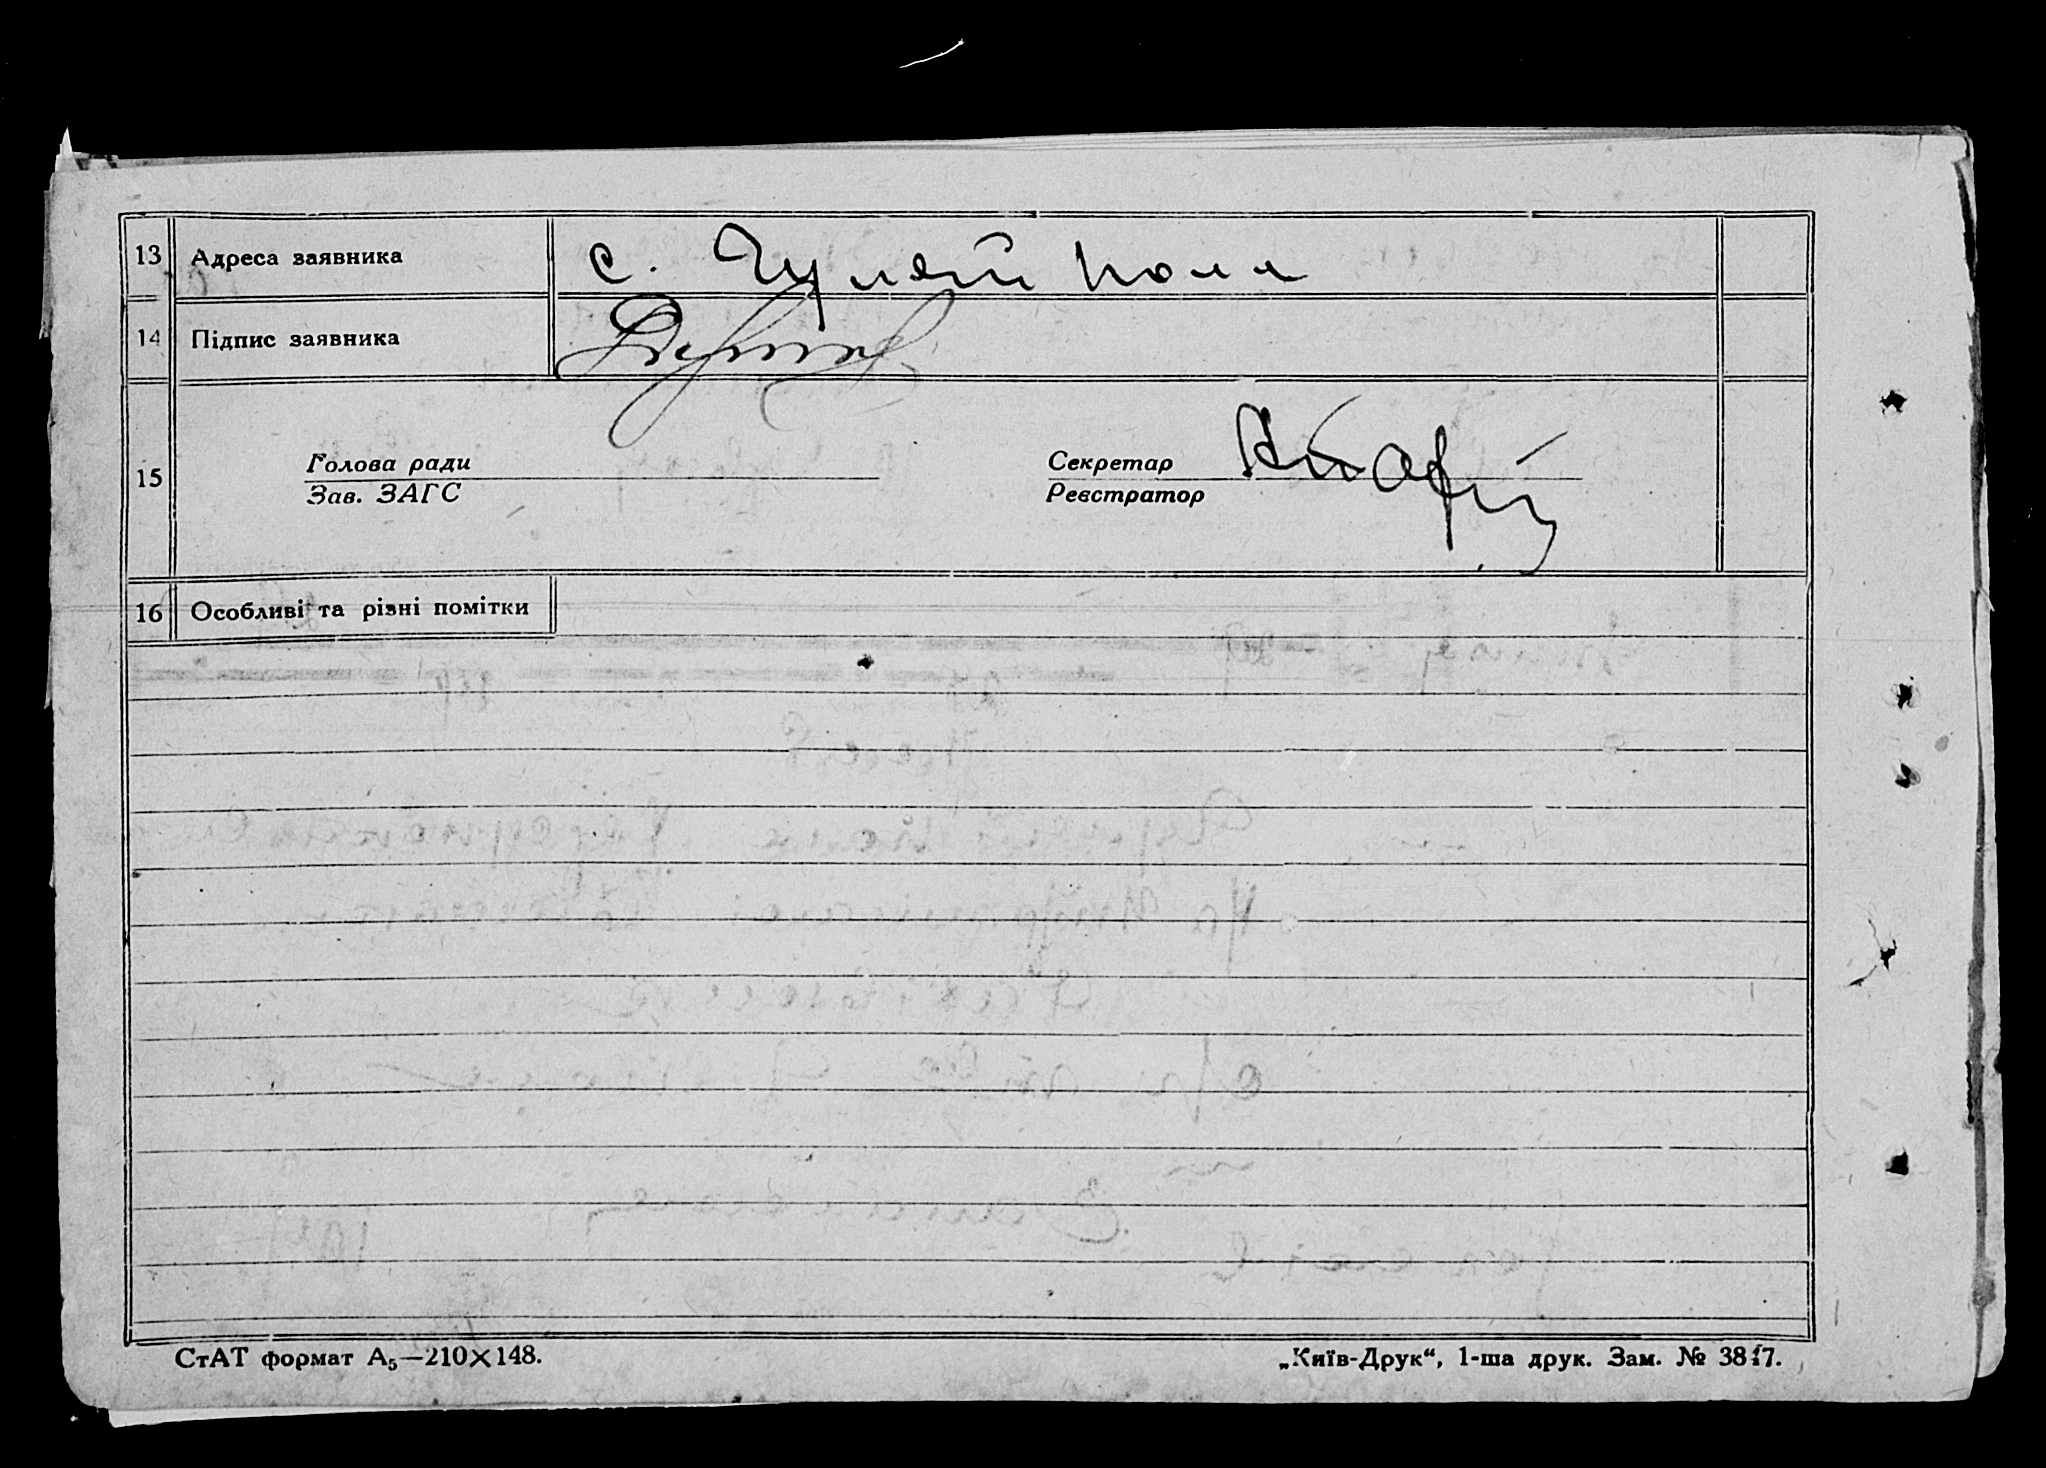 13 Адреса заявника с. Гуляй Поля
14 Підпис заявника
15 Голова ради Секретар
Зав. ЗАГС Реєстратор
16 Особливі та різні помітки
СтАТ формат А₅—210×148. „Київ-Друк“, 1-ша друк. Зам. №